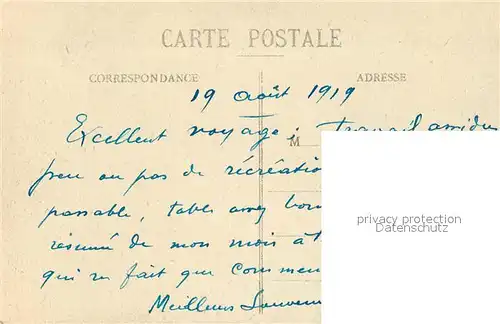 CARTE POSTALE
CORRESPONDANCE
ADRESSE
19 août 1919
Excellent voyage; travail assidu
M
peu ou pas de récréation
passable, table assez bon
résumé de mon mois à
qui ne fait que commen
Meilleurs Souven
privacy protection
Datenschutz